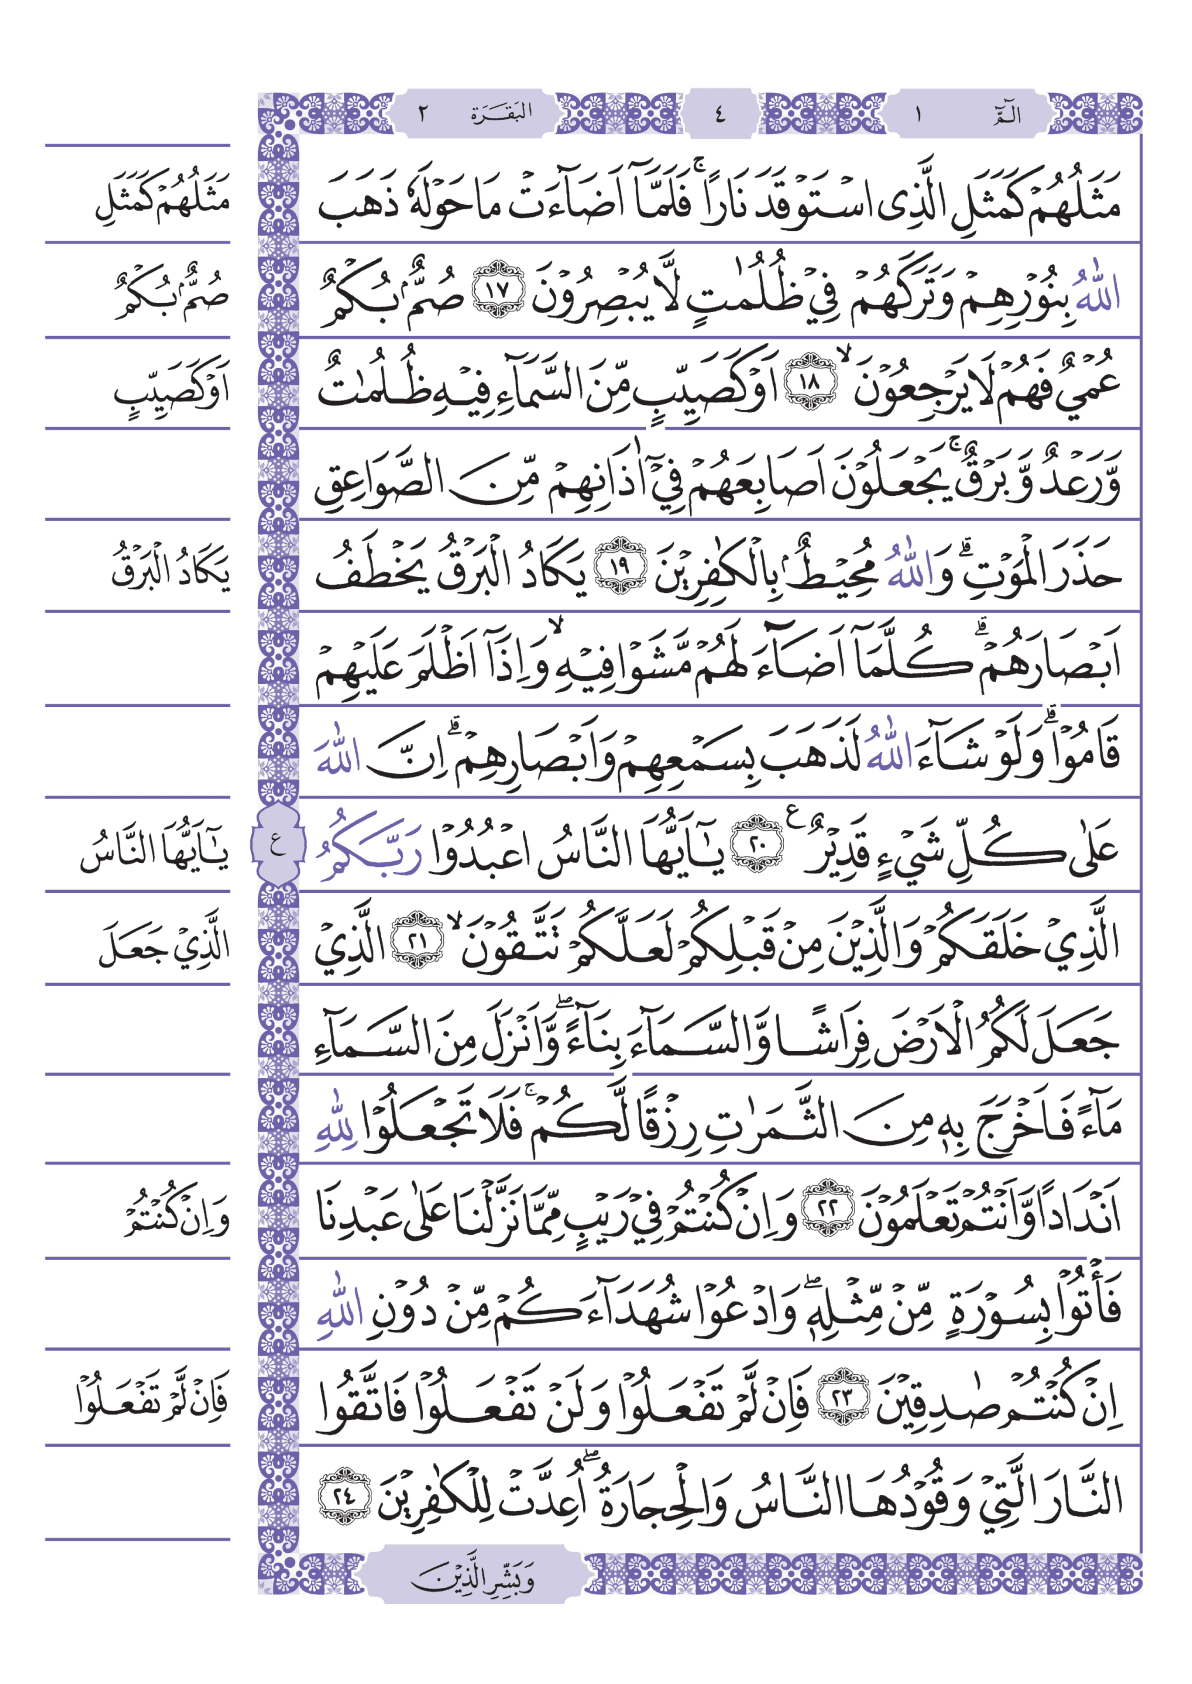 الٓمّٓ ١
٤
البَقـَرَة ٢
مَثَلُهُمْ كَمَثَلِ الَّذِى اسْتَوْقَدَ نَارًا ۚ فَلَمَّاۤ اَضَآءَتْ مَا حَوْلَهٗ ذَهَبَ
مَثَلُهُمْ كَمَثَلِ
اللّٰهُ بِنُوْرِهِمْ وَتَرَكَهُمْ فِيْ ظُلُمٰتٍ لَّا يُبْصِرُوْنَ ١٧ صُمٌّۢ بُكْمٌ
صُمٌّۢ بُكْمٌ
عُمْيٌ فَهُمْ لَا يَرْجِعُوْنَ ۙ ١٨ اَوْ كَصَيِّبٍ مِّنَ السَّمَآءِ فِيْهِ ظُلُمٰتٌ
اَوْ كَصَيِّبٍ
وَّرَعْدٌ وَّبَرْقٌ ۚ يَجْعَلُوْنَ اَصَابِعَهُمْ فِيْۤ اٰذَانِهِمْ مِّنَ الصَّوَاعِقِ
حَذَرَ الْمَوْتِ ۗ وَاللّٰهُ مُحِيْطٌۢ بِالْكٰفِرِيْنَ ١٩ يَكَادُ الْبَرْقُ يَخْطَفُ
يَكَادُ الْبَرْقُ
اَبْصَارَهُمْ ۗ كُلَّمَاۤ اَضَآءَ لَهُمْ مَّشَوْا فِيْهِ ۙ وَاِذَاۤ اَظْلَمَ عَلَيْهِمْ
قَامُوْا ۗ وَلَوْ شَآءَ اللّٰهُ لَذَهَبَ بِسَمْعِهِمْ وَاَبْصَارِهِمْ ۗ اِنَّ اللّٰهَ
عَلٰى كُلِّ شَيْءٍ قَدِيْرٌ ع ٢٠ يٰۤاَيُّهَا النَّاسُ اعْبُدُوْا رَبَّكُمُ
ع
يٰۤاَيُّهَا النَّاسُ
الَّذِيْ خَلَقَكُمْ وَالَّذِيْنَ مِنْ قَبْلِكُمْ لَعَلَّكُمْ تَتَّقُوْنَ ۙ ٢١ الَّذِيْ
الَّذِيْ جَعَلَ
جَعَلَ لَكُمُ الْاَرْضَ فِرَاشًا وَّالسَّمَآءَ بِنَآءً ۖ وَّاَنْزَلَ مِنَ السَّمَآءِ
مَآءً فَاَخْرَجَ بِهٖ مِنَ الثَّمَرٰتِ رِزْقًا لَّكُمْ ۚ فَلَا تَجْعَلُوْا لِلّٰهِ
اَنْدَادًا وَّاَنْتُمْ تَعْلَمُوْنَ ٢٢ وَاِنْ كُنْتُمْ فِيْ رَيْبٍ مِّمَّا نَزَّلْنَا عَلٰى عَبْدِنَا
وَاِنْ كُنْتُمْ
فَأْتُوْا بِسُوْرَةٍ مِّنْ مِّثْلِهٖ ۖ وَادْعُوْا شُهَدَآءَكُمْ مِّنْ دُوْنِ اللّٰهِ
اِنْ كُنْتُمْ صٰدِقِيْنَ ٢٣ فَاِنْ لَّمْ تَفْعَلُوْا وَلَنْ تَفْعَلُوْا فَاتَّقُوا
فَاِنْ لَّمْ تَفْعَلُوْا
النَّارَ الَّتِيْ وَقُوْدُهَا النَّاسُ وَالْحِجَارَةُ ۖ اُعِدَّتْ لِلْكٰفِرِيْنَ ٢٤
وَبَشِّرِ الَّذِيْنَ